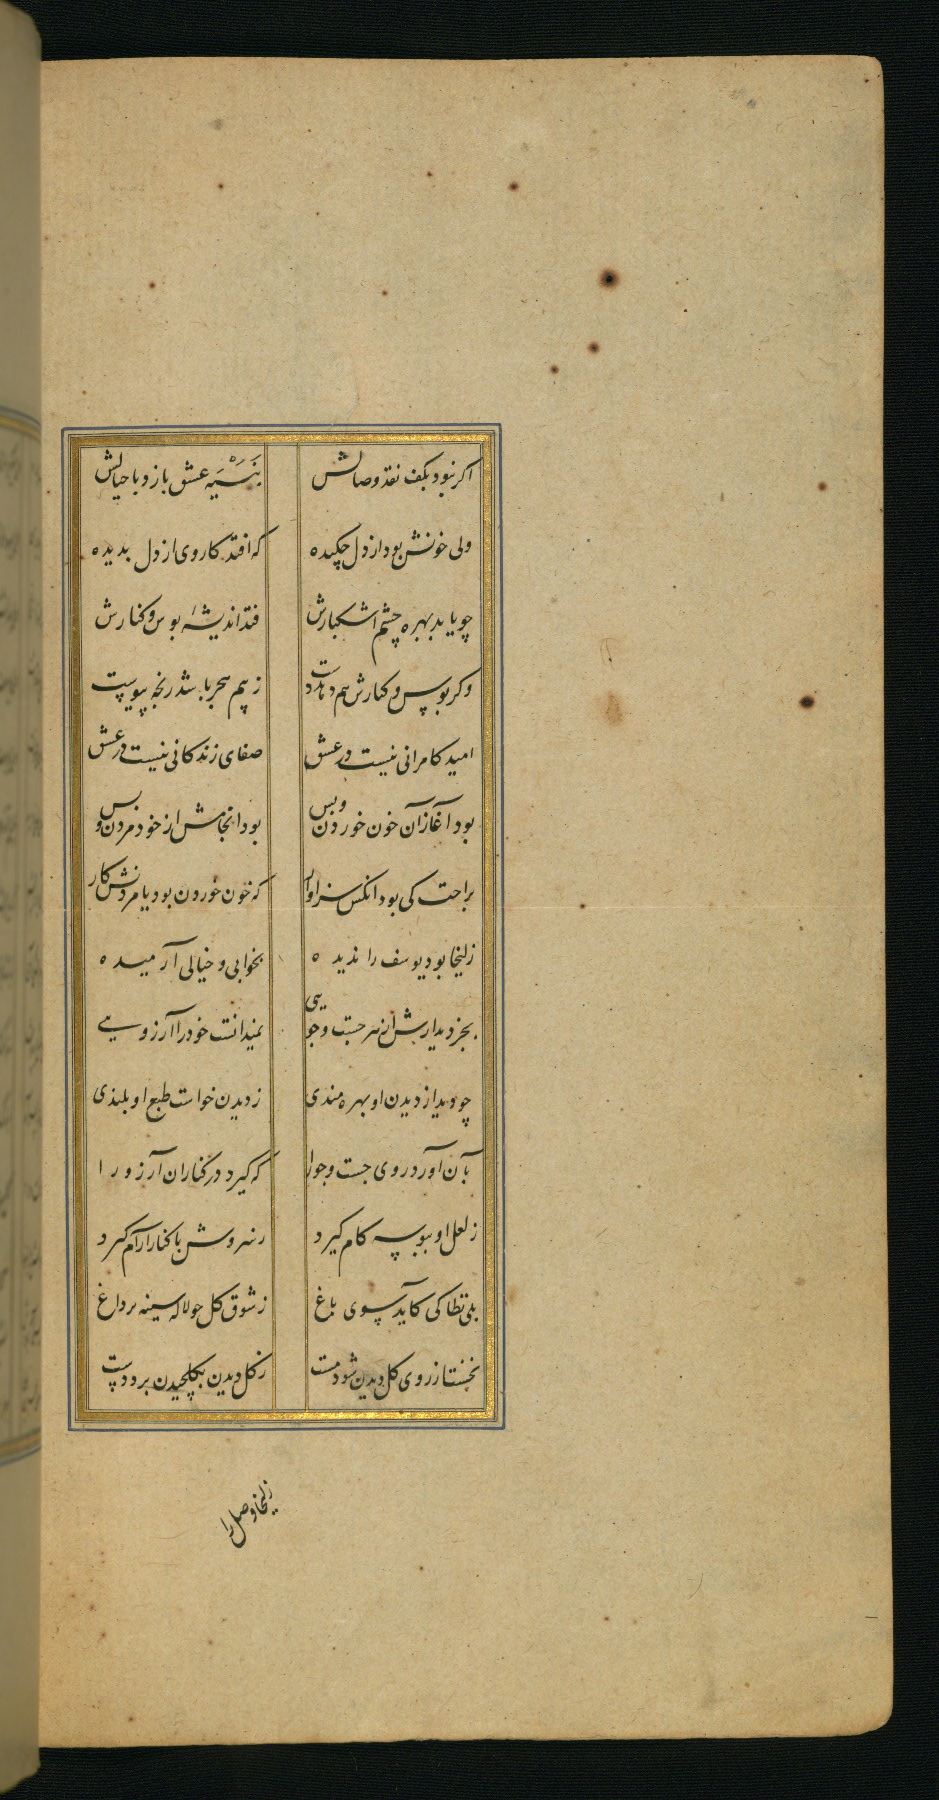 اکر نبود بکف نقد وصالش بنسیه عشق بازد با خیالش
ولی خونش بود از دل چکیده که افتد کار وی از دل بدیده
چو یابد بهره چشم اشکبارش فتد اندیشهٔ بوس و کنارش
وکر بوس و کنارش هم دهد دست ز بیم هجر باشد رنجه پیوست
امید کامرانی نیست در عشق صفای زندکانی نیست در عشق
بود آغاز آن خون خوردن و بس بود انجامش از خود مردن و بس
براحت کی بود آنکس سزاوار که خون خوردن بود یا مردنش کار
زلیخا بود یوسف را ندیده بخوابی و خیالی آرمیده
بجز دیدارش از هر جست و جویی نمیدانست خود را آرزویی
چو دید از دیدن او بهره مندی ز دیدن خواست طبع او بلندی
بآن آورد روی جست و جو را که کیرد در کنار آن آرزو را
ز لعل او ببوسه کام کیرد ز سروش با کنار آرام کیرد
بلی نظارکی کآید سوی باغ ز شوق کل چو لاله سینه بر داغ
نخست از روی کل دیدن شود مست ز کل دیدن بکلچیدن برد دست
زلیخا وصل را